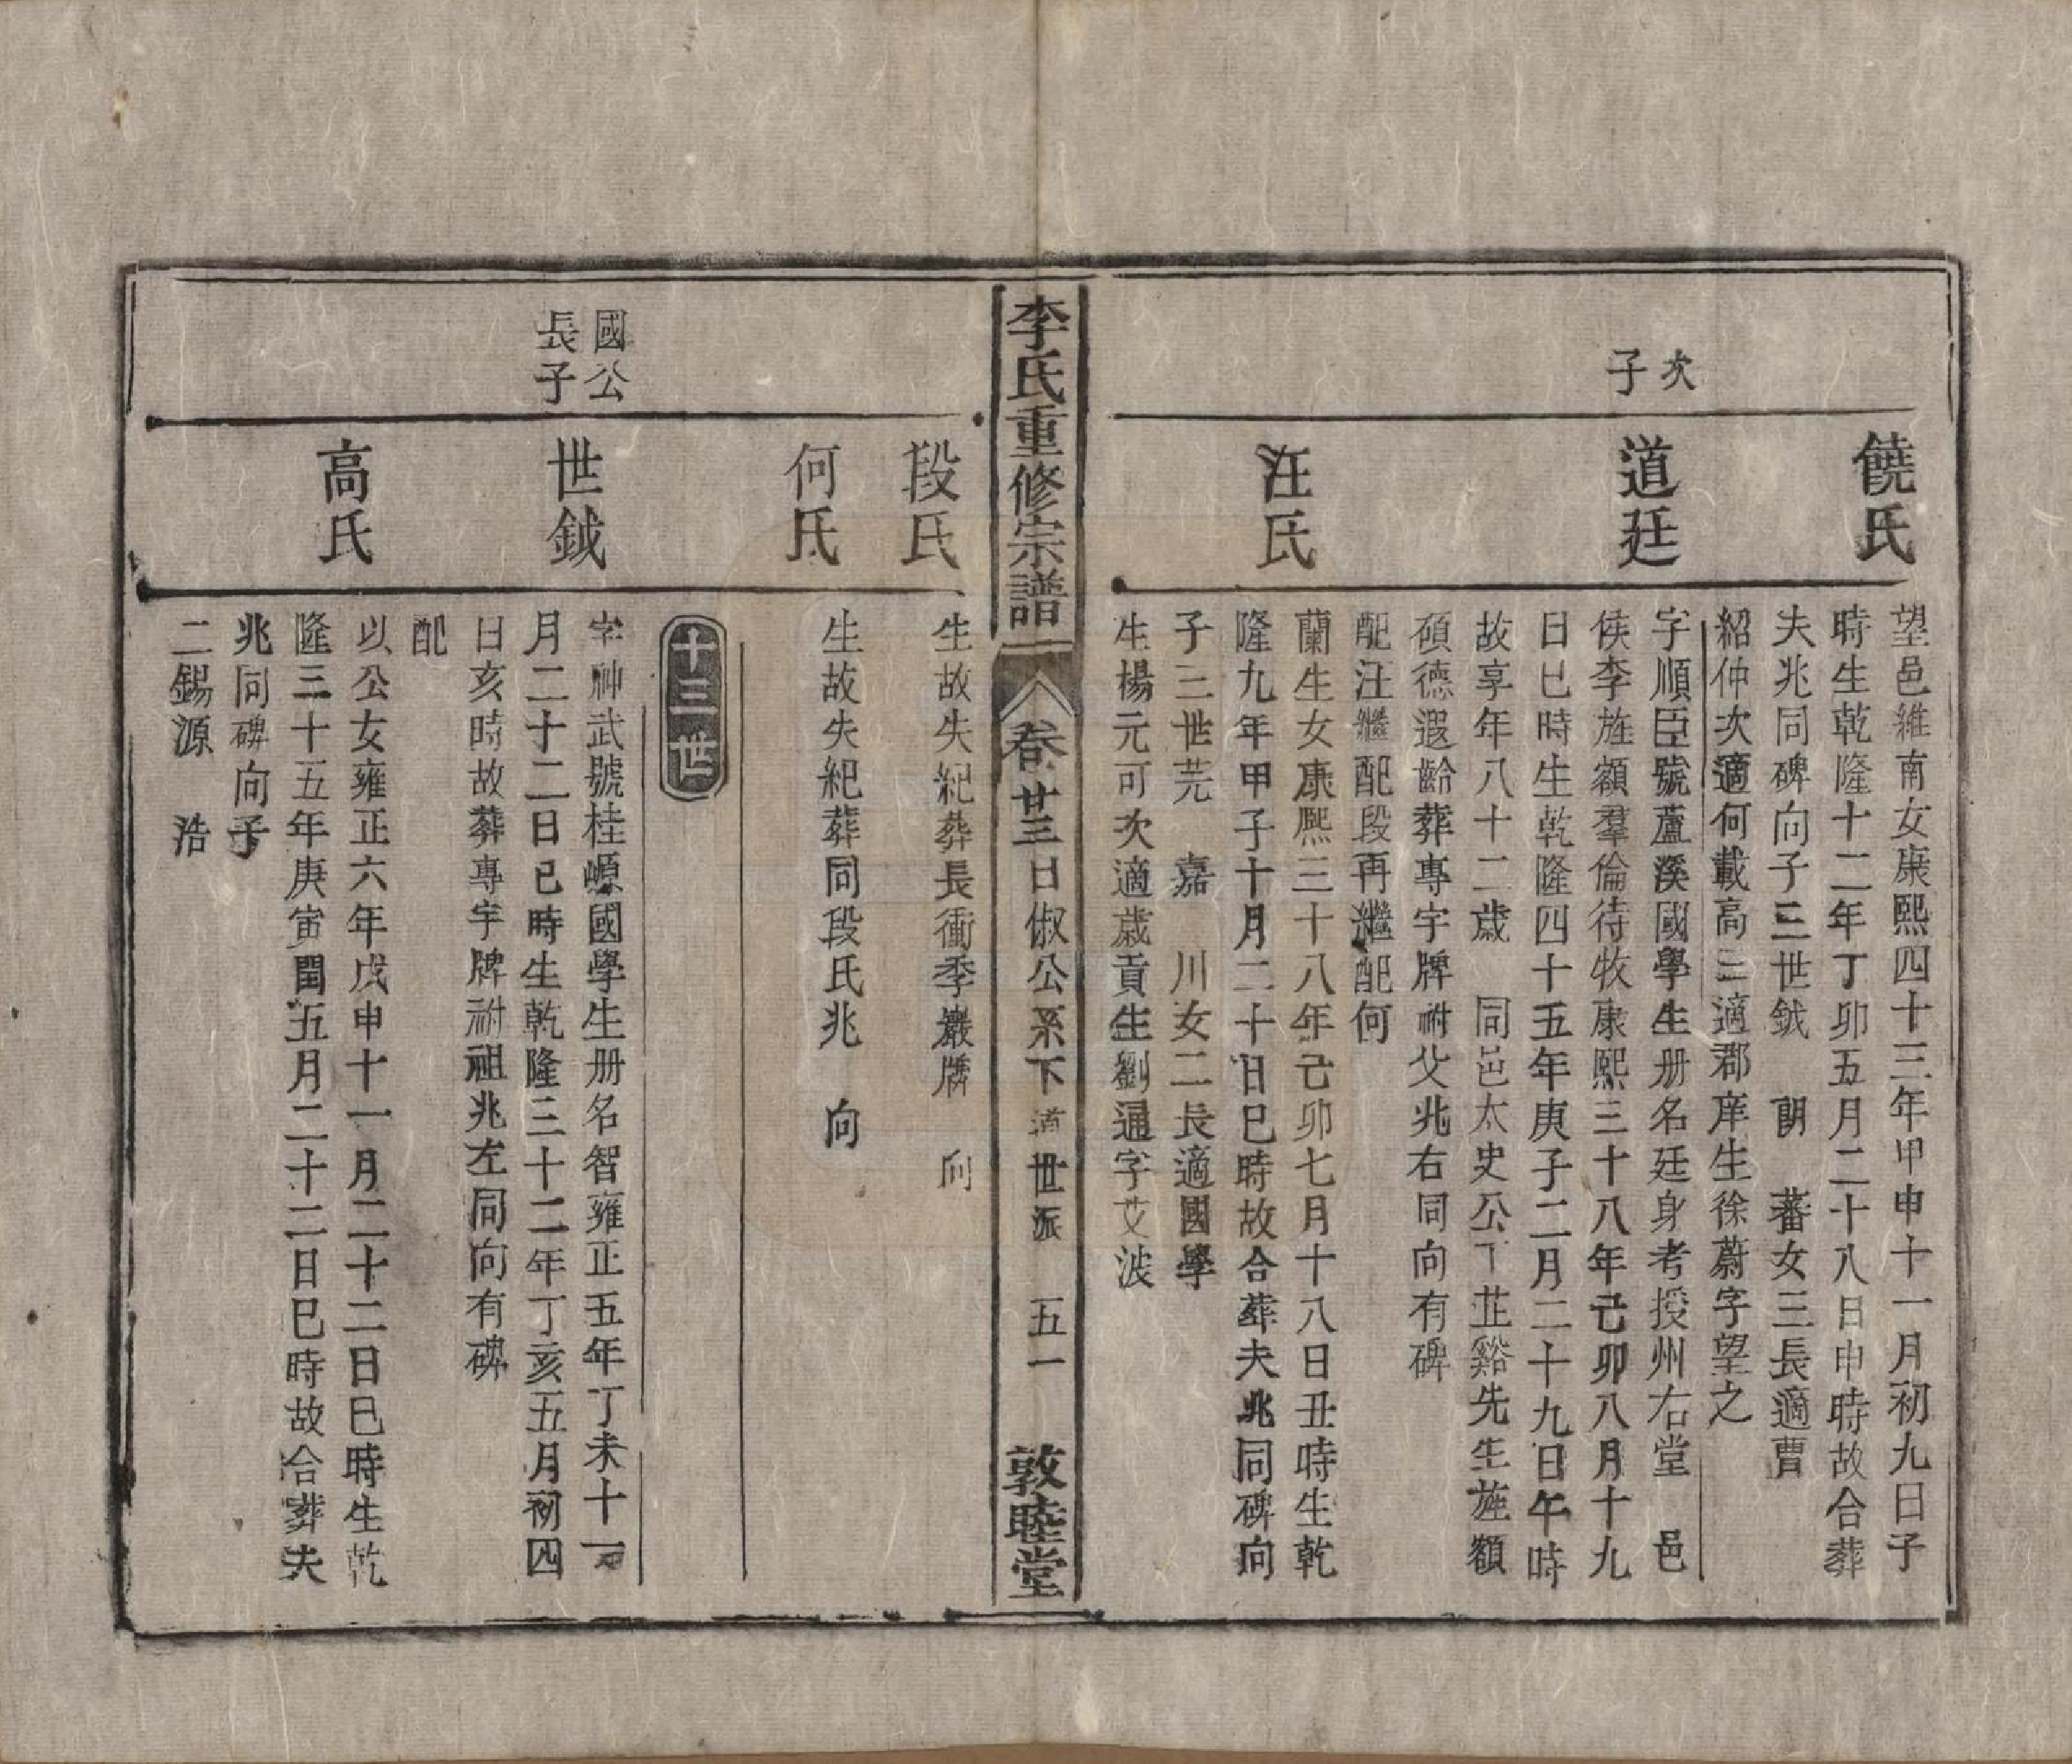 饒氏
望邑維南女康熙四十三年甲申十一月初九日子
時生乾隆十二年丁卯五月二十八日申時故合葬
夫兆同碑向子三世鉞　朝　蕃女三長適曹
紹仲次適何載高三適郡庠生徐蔚字望之
次子
道廷
字順臣號蘆溪國學生册名廷身考授州右堂　邑
侯李旌額羣倫待牧康熙三十八年己卯八月十九
日巳時生乾隆四十五年庚子二月二十九日午時
故享年八十二歲　同邑太史公丁芷谿先生旌額
碩德遐齡葬專字牌祔父兆右同向有碑
配汪繼配段再繼配何
汪氏
蘭生女康熙三十八年己卯七月十八日丑時生乾
隆九年甲子十月二十日巳時故合葬夫兆同碑向
子三世芫　嘉　川女二長適國學
生楊元可次適歲貢生劉通字艾波
李氏重修宗譜
卷廿三日俶公系下道世派　五一
敦睦堂
段氏
生故失紀葬長衝季巖牌　向
何氏
生故失紀葬同段氏兆　向
十三世
國公
長子
世鉞
字神武號桂嫄國學生册名智雍正五年丁未十一
月二十二日巳時生乾隆三十二年丁亥五月初四
日亥時故葬專字牌祔祖兆左同向有碑
配
高氏
以公女雍正六年戊申十一月二十二日巳時生乾
隆三十五年庚寅閏五月二十二日巳時故合葬夫
兆同碑向子
二錫源　浩